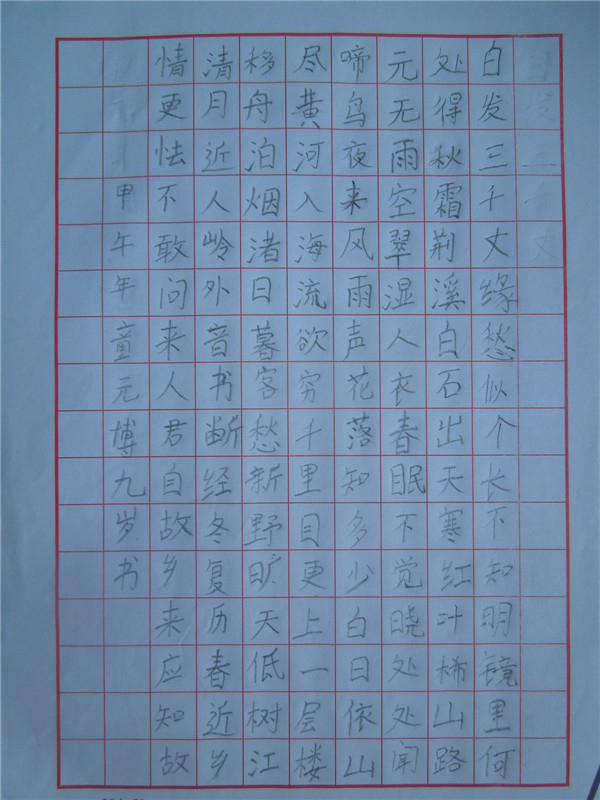 白发三千丈缘愁似个长不知明镜里何
处得秋霜荆溪白石出天寒红叶稀山路
元无雨空翠湿人衣春眠不觉晓处处闻
啼鸟夜来风雨声花落知多少白日依山
尽黄河入海流欲穷千里目更上一层楼
移舟泊烟渚日暮客愁新野旷天低树江
清月近人岭外音书断经冬复历春近乡
情更怯不敢问来人君自故乡来应知故
甲午年童元博九岁书